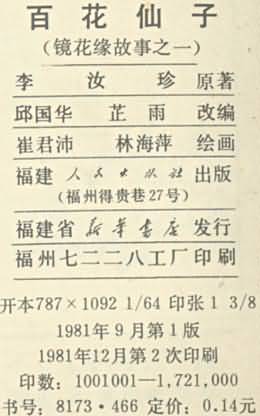 百花仙子
(镜花缘故事之一)
李汝珍 原著
邱国华 芷雨 改编
崔君沛 林海萍 绘画
福建人民出版社 出版
(福州得贵巷27号)
福建省新华书店 发行
福州七二二八工厂印刷
开本787×1092 1/64 印张 1 3/8
1981年9月第1版
1981年12月第2次印刷
印数：1001001—1,721,000
书号：8173·466 定价：0.14元